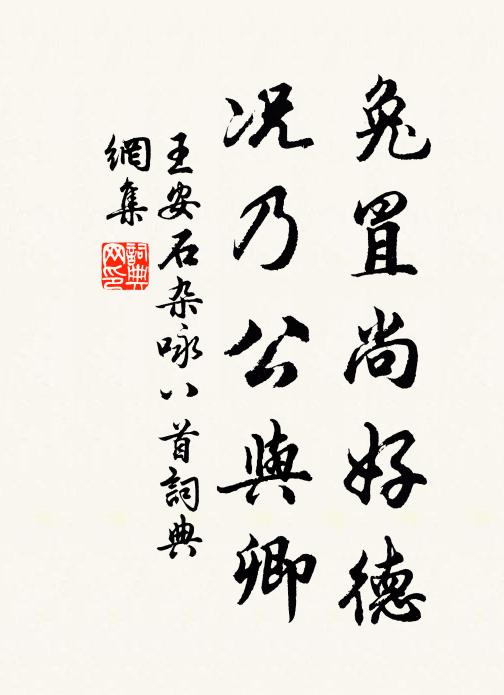 兔罝尚好德
况乃公與卿
王安石杂咏八首詞典
網集
詞典网印